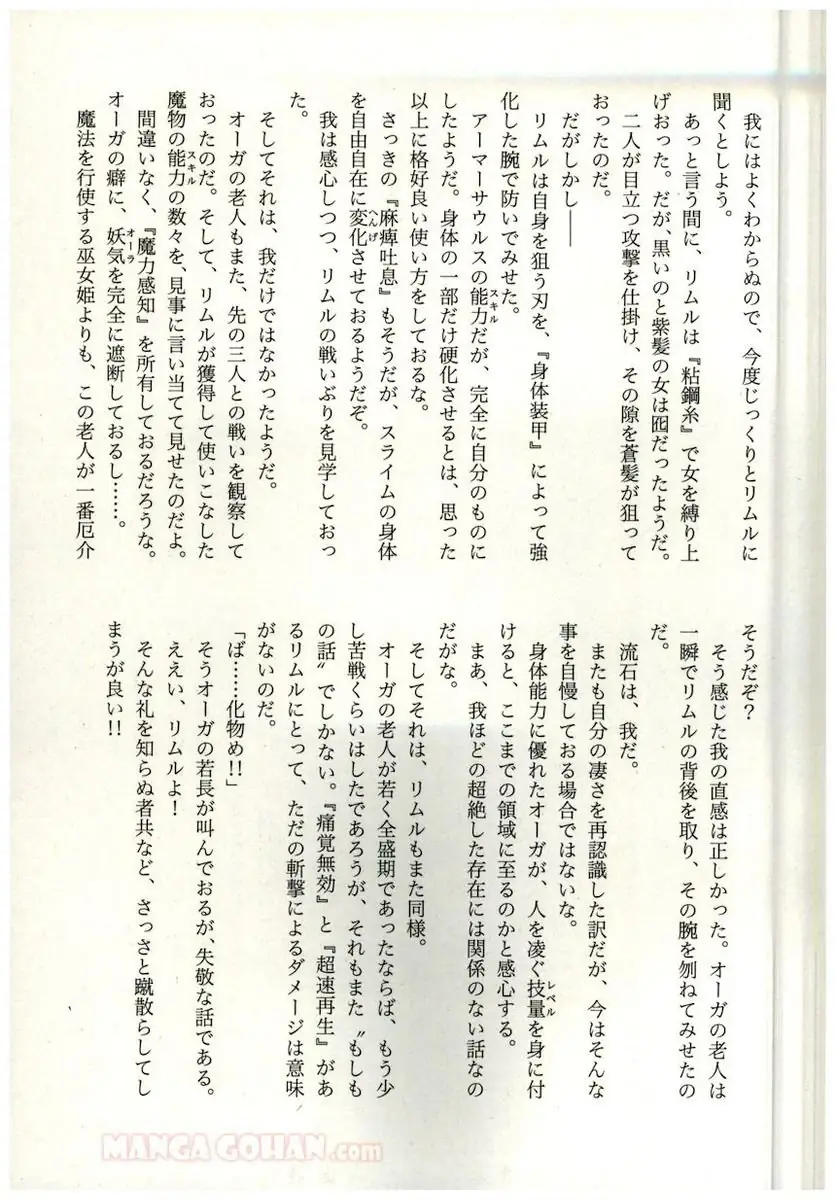 我にはよくわからぬので、今度じっくりとリムルに
聞くとしよう。
あっと言う間に、リムルは『粘鋼糸』で女を縛り上
げおった。だが、黒いのと紫髪の女は囮だったようだ。
二人が目立つ攻撃を仕掛け、その隙を蒼髪が狙って
おったのだ。
だがしかし――
リムルは自身を狙う刃を、『身体装甲』によって強
化した腕で防いでみせた。
アーマーサウルスの能力だが、完全に自分のものに
スキル
したようだ。身体の一部だけ硬化させるとは、思った
以上に格好良い使い方をしておるな。
さっきの『麻痺吐息』もそうだが、スライムの身体
を自由自在に変化させておるようだぞ。
へんげ
我は感心しつつ、リムルの戦いぶりを見学しておっ
た。
そしてそれは、我だけではなかったようだ。
オーガの老人もまた、先の三人との戦いを観察して
おったのだ。そして、リムルが獲得して使いこなした
魔物の能力の数々を、見事に言い当てて見せたのだよ。
スキル
間違いなく、『魔力感知』を所有しておるだろうな。
オーガの癖に、妖気を完全に遮断しておるし……。
オーラ
魔法を行使する巫女姫よりも、この老人が一番厄介
そうだぞ？
そう感じた我の直感は正しかった。オーガの老人は
一瞬でリムルの背後を取り、その腕を刎ねてみせたの
だ。
流石は、我だ。
またも自分の凄さを再認識した訳だが、今はそんな
事を自慢しておる場合ではないな。
身体能力に優れたオーガが、人を凌ぐ技量を身に付
レベル
けると、ここまでの領域に至るのかと感心する。
まあ、我ほどの超絶した存在には関係のない話なの
だがな。
そしてそれは、リムルもまた同様。
オーガの老人が若く全盛期であったならば、もう少
し苦戦くらいはしたであろうが、それもまた〝もしも
の話〟でしかない。『痛覚無効』と『超速再生』があ
るリムルにとって、ただの斬撃によるダメージは意味
がないのだ。
「ば……化物め!!」
そうオーガの若長が叫んでおるが、失敬な話である。
ええい、リムルよ！
そんな礼を知らぬ者共など、さっさと蹴散らしてし
まうが良い!!
MANGA GOHAN.com